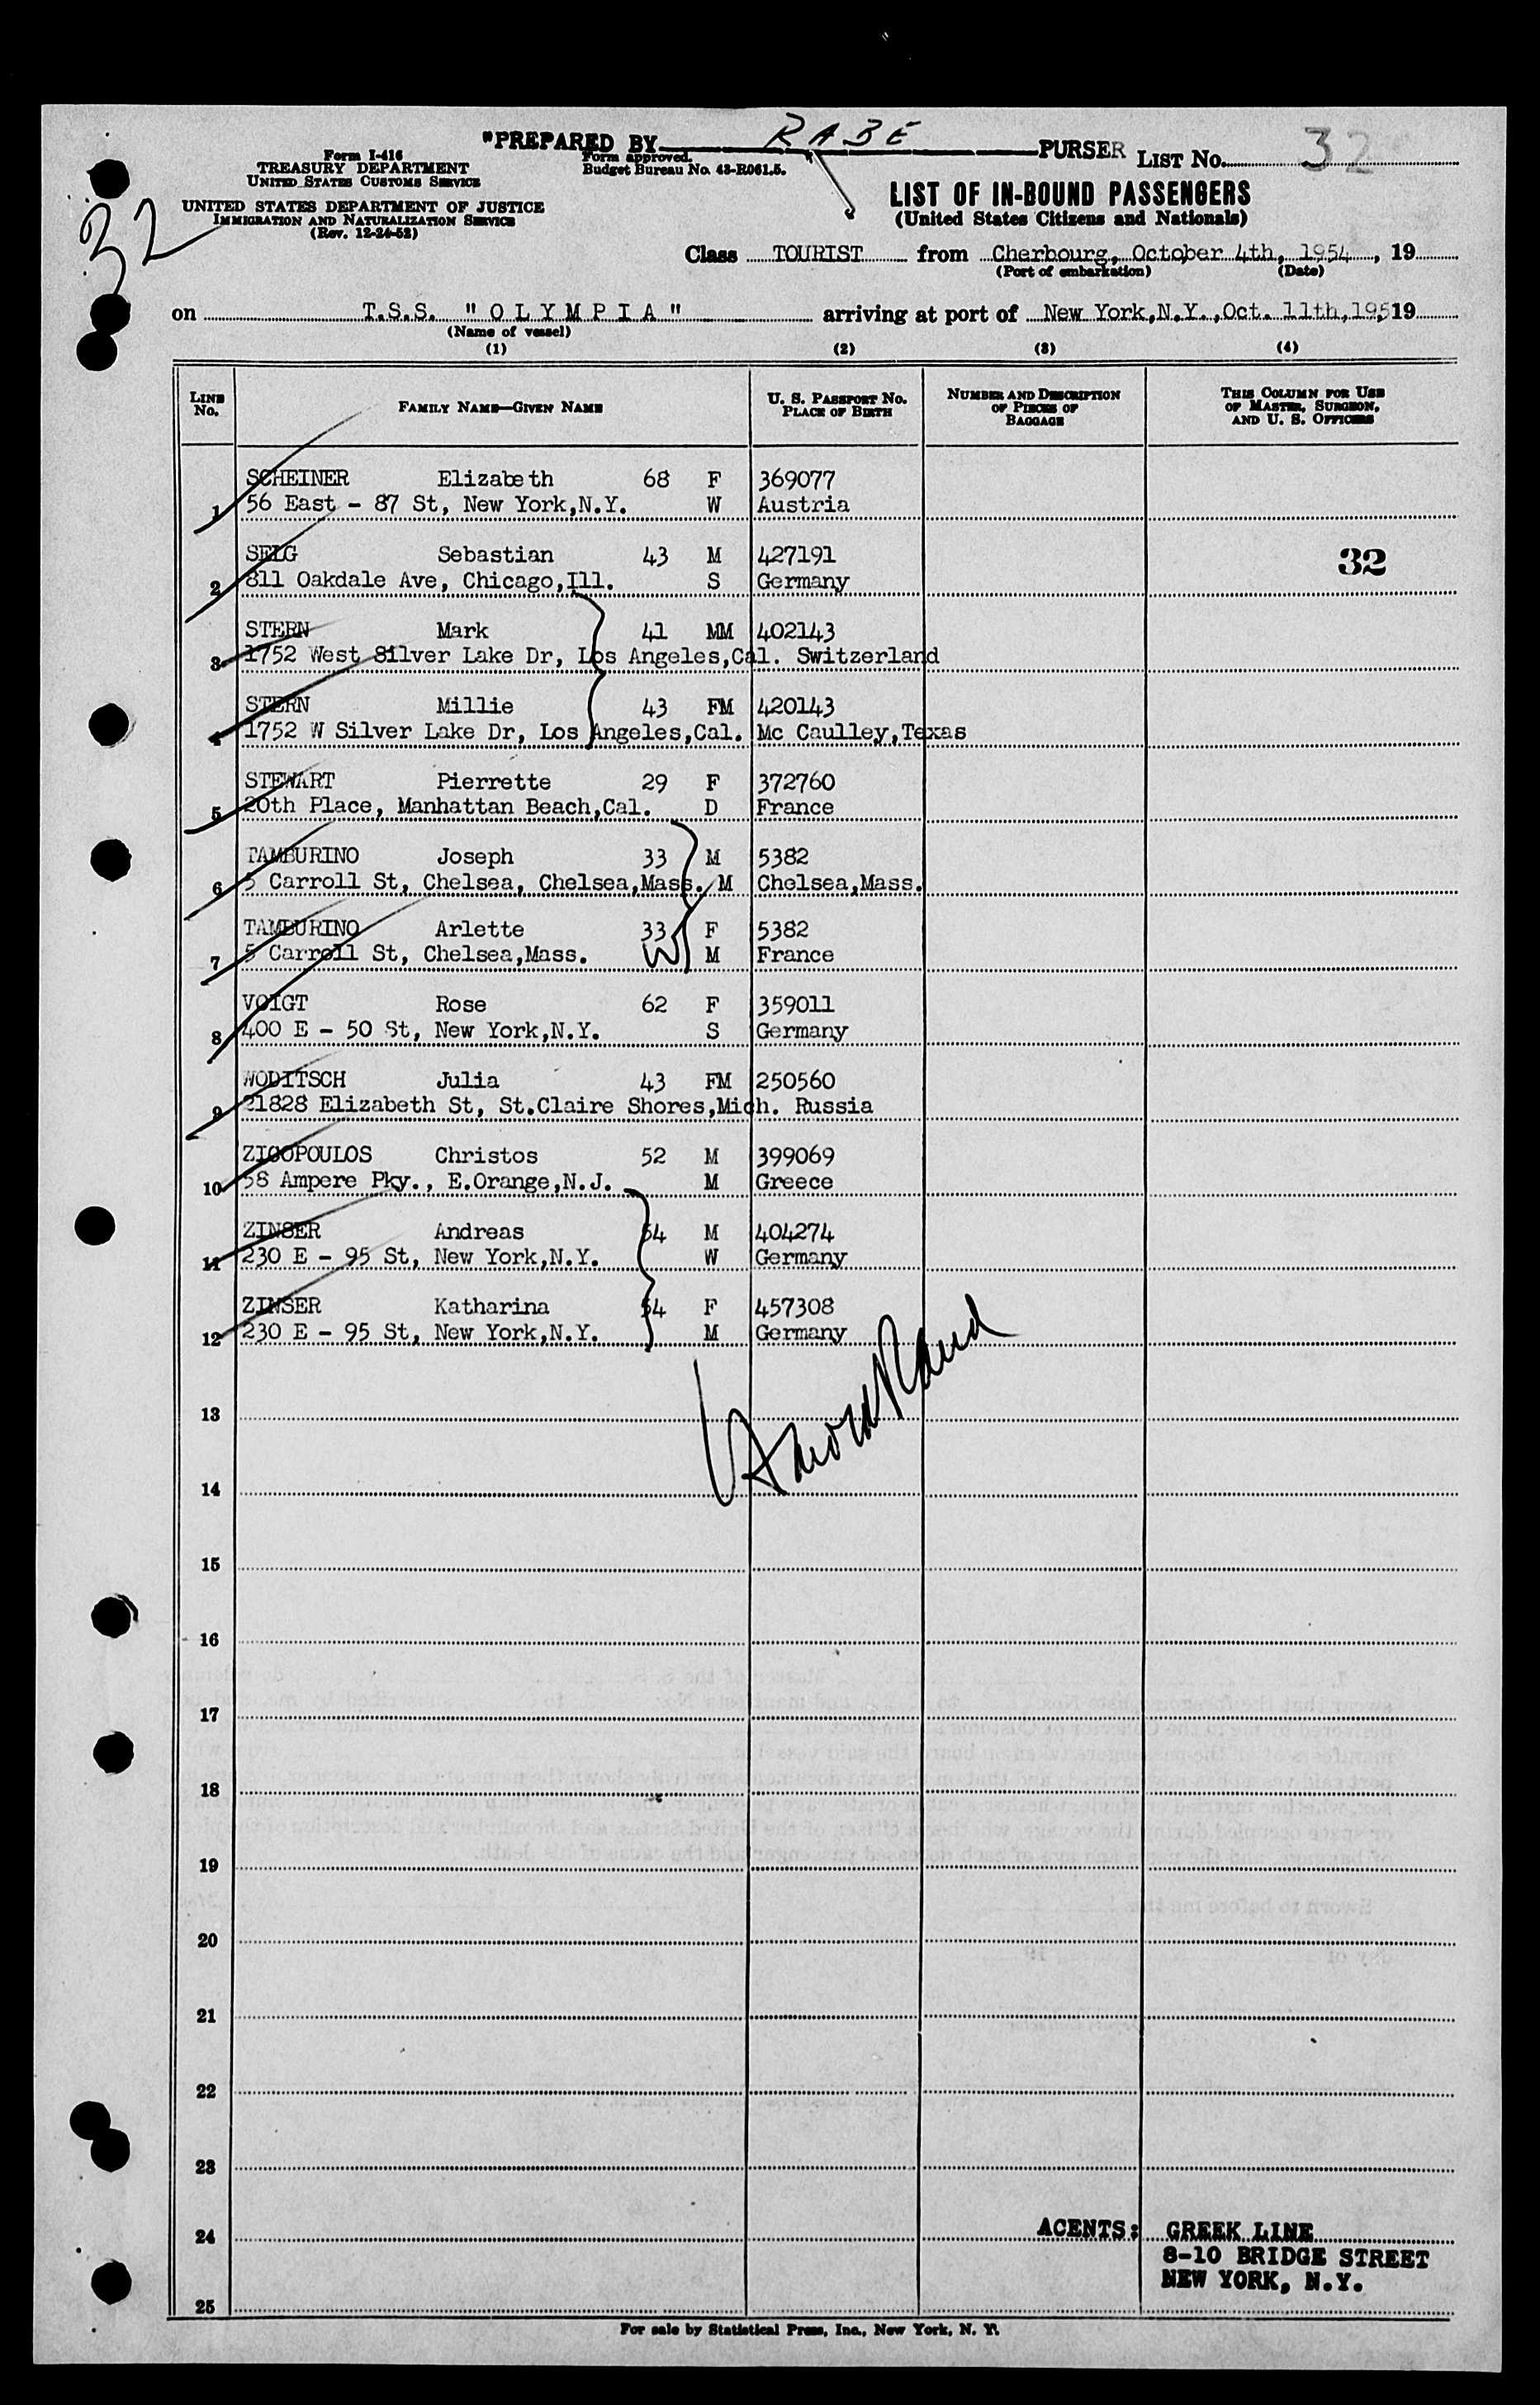 "PREPARED BY RABE PURSER LIST No. 32
Form I-416
TREASURY DEPARTMENT
UNITED STATES CUSTOMS SERVICE
Form approved.
Budget Bureau No. 43-R061.5.
32
UNITED STATES DEPARTMENT OF JUSTICE
IMMIGRATION AND NATURALIZATION SERVICE
(Rev. 12-24-52)
LIST OF IN-BOUND PASSENGERS
(United States Citizens and Nationals)
Class TOURIST from Cherbourg, October 4th, 1954, 19
(Port of embarkation) (Date)
on T.S.S. "OLYMPIA" arriving at port of New York,N.Y.,Oct. 11th,195 19
(Name of vessel)
(1) (2) (3) (4)
LINE No. FAMILY NAME—GIVEN NAME U. S. PASSPORT No. PLACE OF BIRTH NUMBER AND DESCRIPTION OF PIECES OF BAGGAGE THIS COLUMN FOR USE OF MASTER, SURGEON, AND U. S. OFFICERS
SCHEINER Elizabeth 68 F 369077
1 56 East - 87 St, New York,N.Y. W Austria
SELG Sebastian 43 M 427191 32
2 811 Oakdale Ave, Chicago,Ill. S Germany
STERN Mark 41 MM 402143
3 1752 West Silver Lake Dr, Los Angeles,Cal. Switzerland
STERN Millie 43 FM 420143
4 1752 W Silver Lake Dr, Los Angeles,Cal. Mc Caulley,Texas
STEWART Pierrette 29 F 372760
5 20th Place, Manhattan Beach,Cal. D France
TAMBURINO Joseph 33 M 5382
6 5 Carroll St, Chelsea, Chelsea,Mass. M Chelsea,Mass.
TAMBURINO Arlette 33 F 5382
7 5 Carroll St, Chelsea,Mass. M France
VOIGT Rose 62 F 359011
8 400 E - 50 St, New York,N.Y. S Germany
WODITSCH Julia 43 FM 250560
9 21828 Elizabeth St, St.Claire Shores,Mich. Russia
ZIGOPOULOS Christos 52 M 399069
10 58 Ampere Pky., E.Orange,N.J. M Greece
ZINSER Andreas 54 M 404274
11 230 E - 95 St, New York,N.Y. W Germany
ZINSER Katharina 54 F 457308
12 230 E - 95 St, New York,N.Y. M Germany
13
14
15
16
17
18
19
20
21
22
23
24 AGENTS: GREEK LINE
8-10 BRIDGE STREET
NEW YORK, N.Y.
25
For sale by Statistical Press, Inc., New York, N. Y.